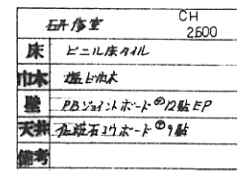 研修室 CH 2600
床 ビニル床タイル
巾木 塩ビ巾木
壁 PBジョイントボード⑦12貼EP
天井 化粧石コウボード⑦9貼
備考